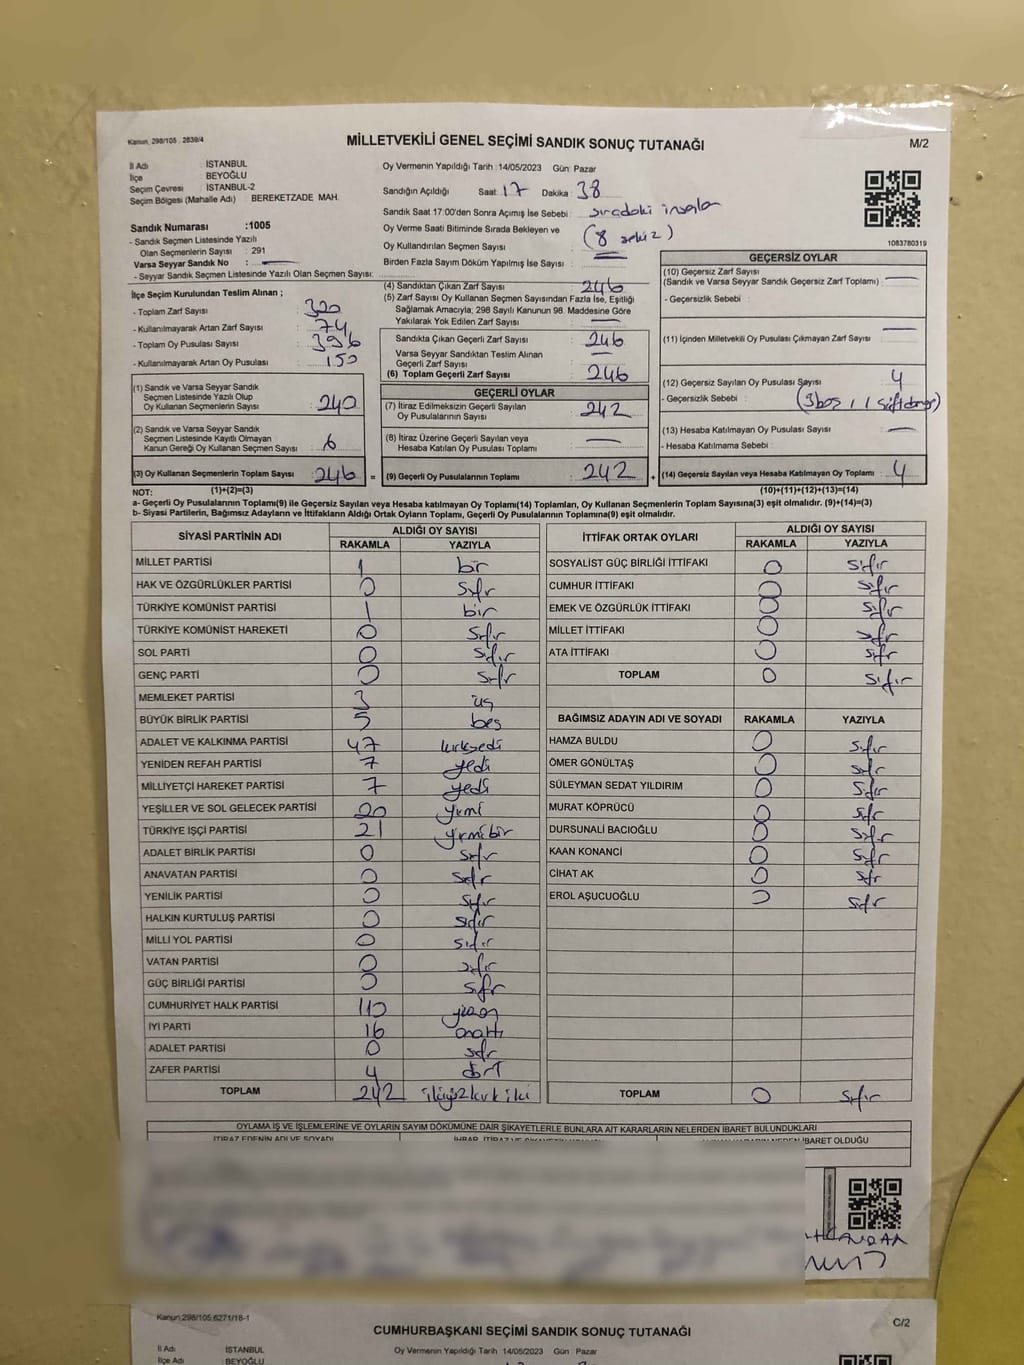 Kanun, 298/105 . 2839/4
MİLLETVEKİLİ GENEL SEÇİMİ SANDIK SONUÇ TUTANAĞI
M/2
İl Adı : İSTANBUL
İlçe : BEYOĞLU
Seçim Çevresi : İSTANBUL-2
Seçim Bölgesi (Mahalle Adı) : BEREKETZADE MAH.
Sandık Numarası :1005
- Sandık Seçmen Listesinde Yazılı
Olan Seçmenlerin Sayısı : 291
Varsa Seyyar Sandık No :
- Seyyar Sandık Seçmen Listesinde Yazılı Olan Seçmen Sayısı:
Oy Vermenin Yapıldığı Tarih :14/05/2023 Gün: Pazar
Sandığın Açıldığı Saat: 17 Dakika : 38
Sandık Saat 17:00'den Sonra Açımış İse Sebebi : sıradaki insanlar
Oy Verme Saati Bitiminde Sırada Bekleyen ve
Oy Kullandırılan Seçmen Sayısı : (8 sekiz)
Birden Fazla Sayım Döküm Yapılmış İse Sayısı :
1083780319
İlçe Seçim Kurulundan Teslim Alınan ;
- Toplam Zarf Sayısı : 320
- Kullanılmayarak Artan Zarf Sayısı : 74
- Toplam Oy Pusulası Sayısı : 396
- Kullanılmayarak Artan Oy Pusulası : 150
(1) Sandık ve Varsa Seyyar Sandık
Seçmen Listesinde Yazılı Olup
Oy Kullanan Seçmenlerin Sayısı : 240
(2) Sandık ve Varsa Seyyar Sandık
Seçmen Listesinde Kayıtlı Olmayan
Kanun Gereği Oy Kullanan Seçmen Sayısı : 6
(3) Oy Kullanan Seçmenlerin Toplam Sayısı : 246 =
(4) Sandıktan Çıkan Zarf Sayısı : 246
(5) Zarf Sayısı Oy Kullanan Seçmen Sayısından Fazla İse, Eşitliği
Sağlamak Amacıyla; 298 Sayılı Kanunun 98. Maddesine Göre
Yakılarak Yok Edilen Zarf Sayısı :
Sandıkta Çıkan Geçerli Zarf Sayısı : 246
Varsa Seyyar Sandıktan Teslim Alınan
Geçerli Zarf Sayısı :
(6) Toplam Geçerli Zarf Sayısı : 246
GEÇERLİ OYLAR
(7) İtiraz Edilmeksizin Geçerli Sayılan
Oy Pusulalarının Sayısı : 242
(8) İtiraz Üzerine Geçerli Sayılan veya
Hesaba Katılan Oy Pusulası Toplamı :
(9) Geçerli Oy Pusulalarının Toplamı : 242 +
GEÇERSİZ OYLAR
(10) Geçersiz Zarf Sayısı
(Sandık ve Varsa Seyyar Sandık Geçersiz Zarf Toplamı) :
- Geçersizlik Sebebi :
(11) İçinden Milletvekili Oy Pusulası Çıkmayan Zarf Sayısı :
(12) Geçersiz Sayılan Oy Pusulası Sayısı : 4
- Geçersizlik Sebebi : (3 boş, 1
(13) Hesaba Katılmayan Oy Pusulası Sayısı :
- Hesaba Katılmama Sebebi :
(14) Geçersiz Sayılan veya Hesaba Katılmayan Oy Toplamı : 4
NOT: (1)+(2)=(3) (10)+(11)+(12)+(13)=(14)
a- Geçerli Oy Pusulalarının Toplamı(9) ile Geçersiz Sayılan veya Hesaba katılmayan Oy Toplamı(14) Toplamları, Oy Kullanan Seçmenlerin Toplam Sayısına(3) eşit olmalıdır. (9)+(14)=(3)
b- Siyasi Partilerin, Bağımsız Adayların ve İttifakların Aldığı Ortak Oyların Toplamı, Geçerli Oy Pusulalarının Toplamına(9) eşit olmalıdır.
SİYASİ PARTİNİN ADI ALDIĞI OY SAYISI
RAKAMLA YAZIYLA
MİLLET PARTİSİ 1 bir
HAK VE ÖZGÜRLÜKLER PARTİSİ 0 sıfır
TÜRKİYE KOMÜNİST PARTİSİ 1 bir
TÜRKİYE KOMÜNİST HAREKETİ 0 sıfır
SOL PARTİ 0 sıfır
GENÇ PARTİ 0 sıfır
MEMLEKET PARTİSİ 3 üç
BÜYÜK BİRLİK PARTİSİ 5 beş
ADALET VE KALKINMA PARTİSİ 47 kırkyedi
YENİDEN REFAH PARTİSİ 7 yedi
MİLLİYETÇİ HAREKET PARTİSİ 7 yedi
YEŞİLLER VE SOL GELECEK PARTİSİ 20 yirmi
TÜRKİYE İŞÇİ PARTİSİ 21 yirmibir
ADALET BİRLİK PARTİSİ 0 sıfır
ANAVATAN PARTİSİ 0 sıfır
YENİLİK PARTİSİ 0 sıfır
HALKIN KURTULUŞ PARTİSİ 0 sıfır
MİLLİ YOL PARTİSİ 0 sıfır
VATAN PARTİSİ 0 sıfır
GÜÇ BİRLİĞİ PARTİSİ 0 sıfır
CUMHURİYET HALK PARTİSİ 110 yüzon
İYİ PARTİ 16 onaltı
ADALET PARTİSİ 0 sıfır
ZAFER PARTİSİ 4 dört
TOPLAM 242 ikiyüzkırkiki
İTTİFAK ORTAK OYLARI ALDIĞI OY SAYISI
RAKAMLA YAZIYLA
SOSYALİST GÜÇ BİRLİĞİ İTTİFAKI 0 sıfır
CUMHUR İTTİFAKI 0 sıfır
EMEK VE ÖZGÜRLÜK İTTİFAKI 0 sıfır
MİLLET İTTİFAKI 0 sıfır
ATA İTTİFAKI 0 sıfır
TOPLAM 0 sıfır
BAĞIMSIZ ADAYIN ADI VE SOYADI RAKAMLA YAZIYLA
HAMZA BULDU 0 sıfır
ÖMER GÖNÜLTAŞ 0 sıfır
SÜLEYMAN SEDAT YILDIRIM 0 sıfır
MURAT KÖPRÜCÜ 0 sıfır
DURSUNALİ BACIOĞLU 0 sıfır
KAAN KONANCİ 0 sıfır
CİHAT AK 0 sıfır
EROL AŞUCUOĞLU 0 sıfır
TOPLAM 0 sıfır
OYLAMA İŞ VE İŞLEMLERİNE VE OYLARIN SAYIM DÖKÜMÜNE DAİR ŞİKAYETLERLE BUNLARA AİT KARARLARIN NELERDEN İBARET BULUNDUKLARI
İTİRAZ EDENİN ADI VE SOYADI İBARET OLDUĞU
Kanun:298/105;6271/18-1
CUMHURBAŞKANI SEÇİMİ SANDIK SONUÇ TUTANAĞI
C/2
İl Adı : İSTANBUL
İlçe Adı : BEYOĞLU
Oy Vermenin Yapıldığı Tarih :14/05/2023 Gün: Pazar